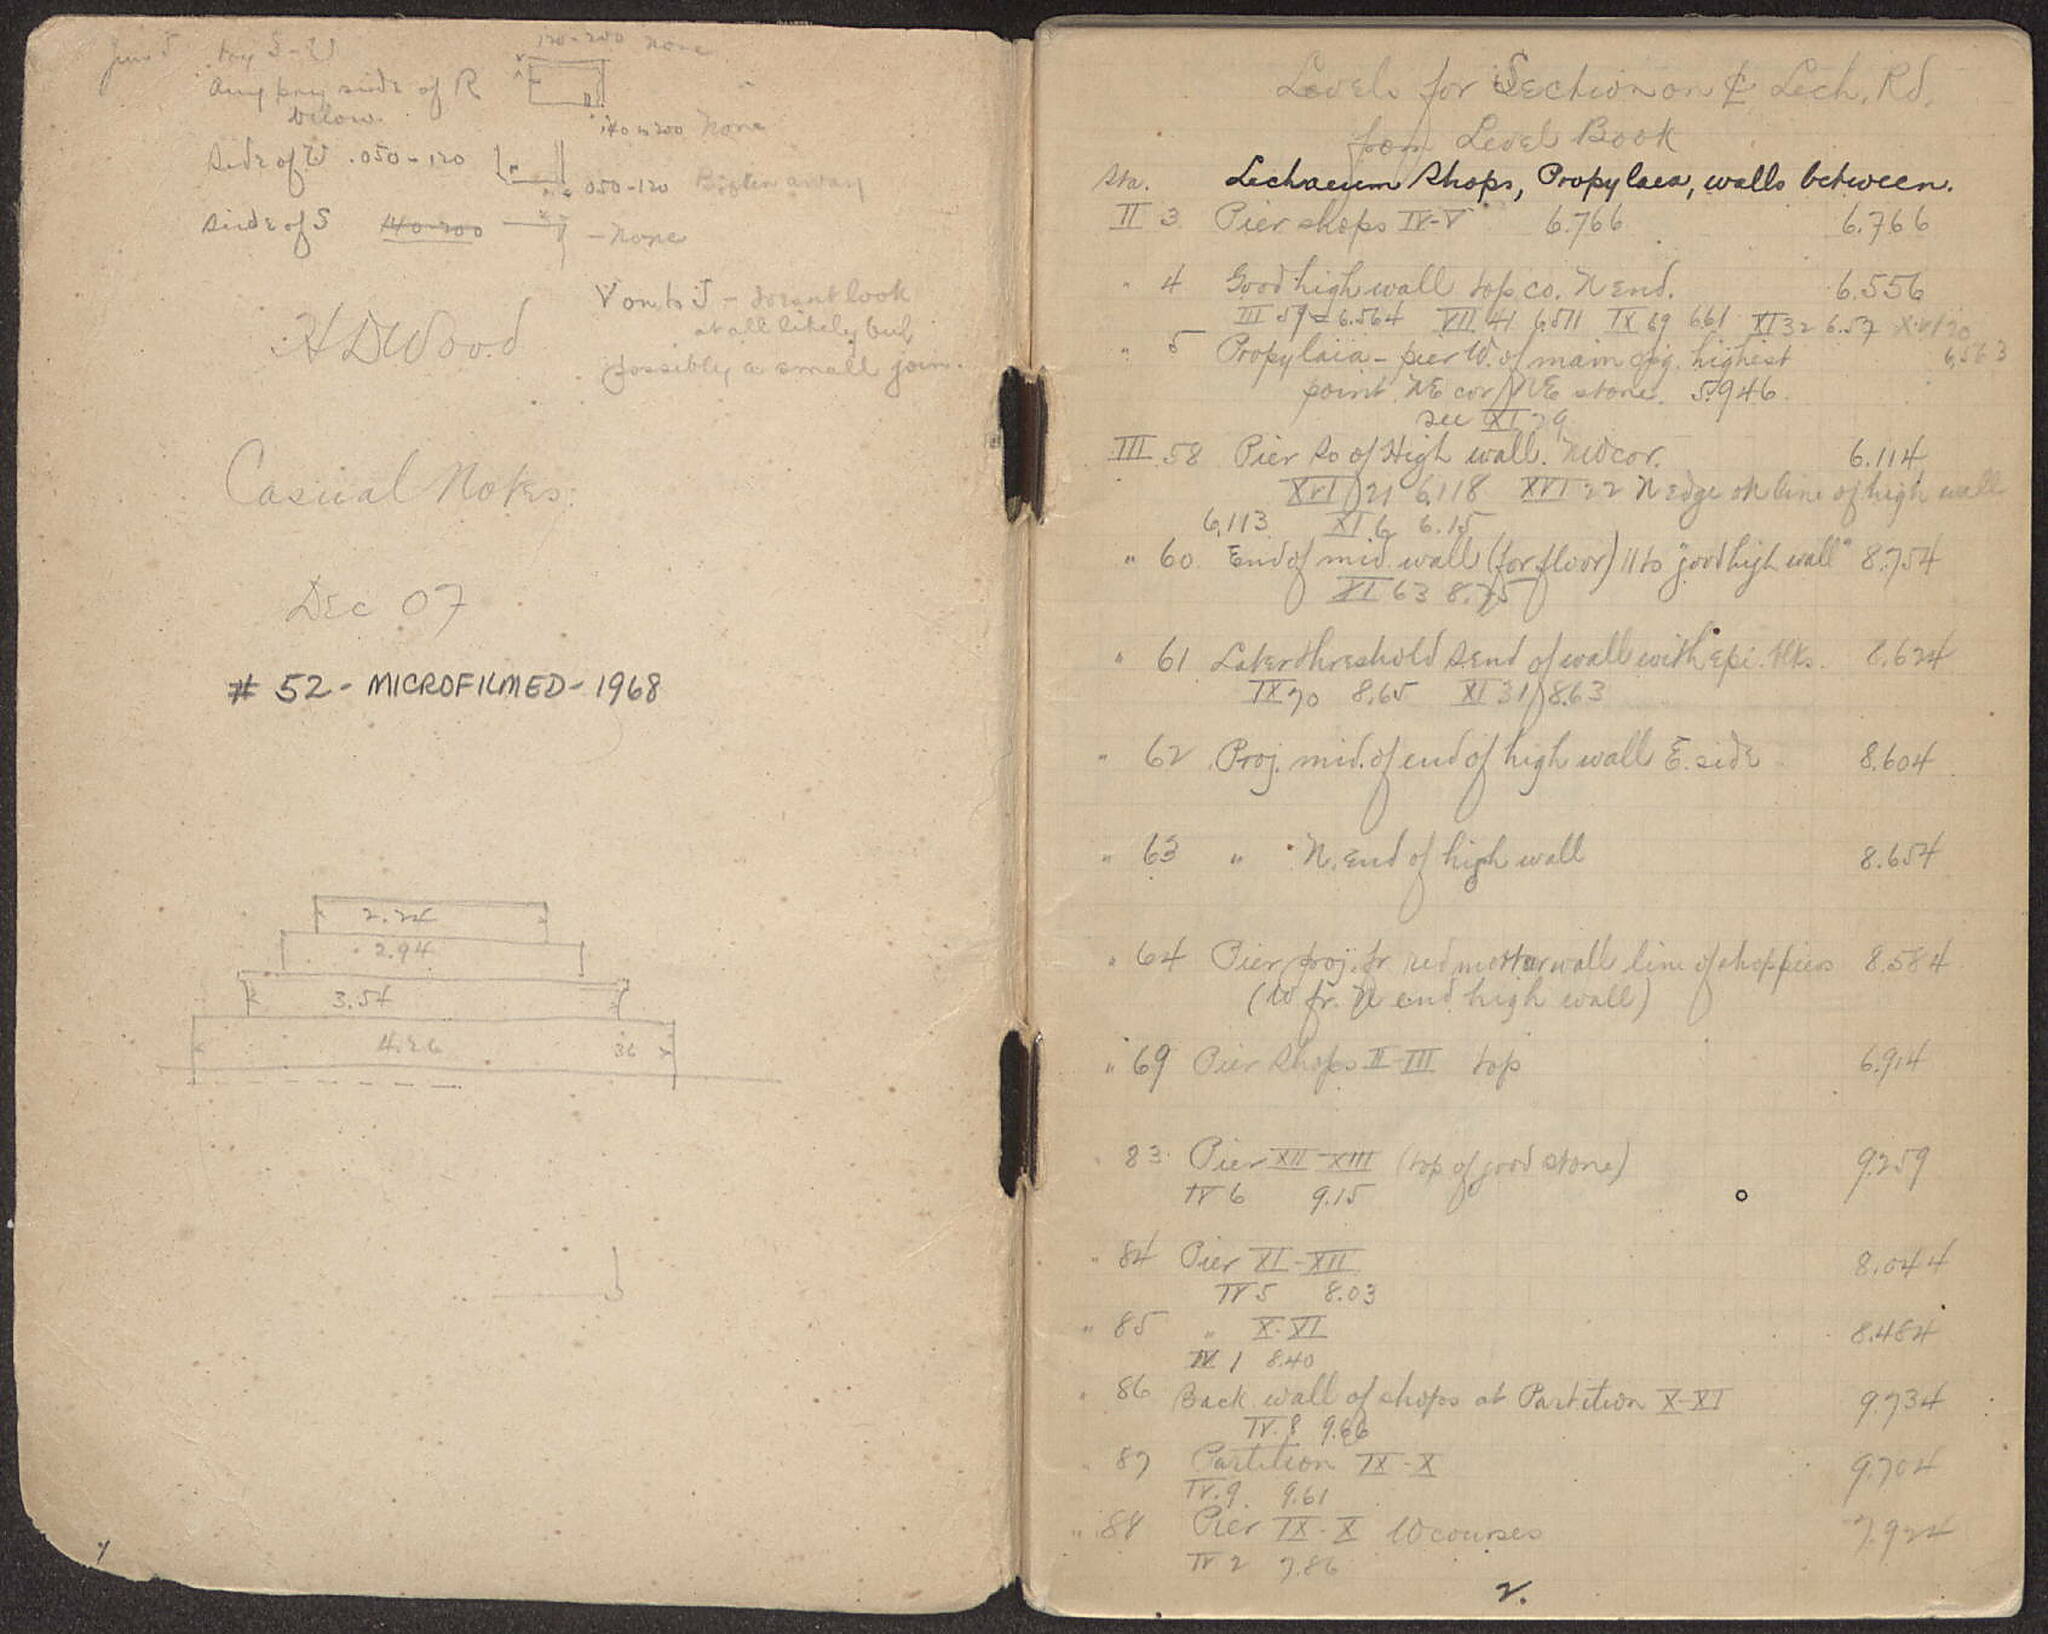 June 5 try S-W
120-200 none
Any proj side of R
below.
140 to 200 None
side of W .050-120
050-120 Broken away
side of S 140-200 - None
V on to S - doesnt look
at all likely but
possibly a small join.
H D Wood
Casual Notes.
Dec 07
# 52 - MICROFILMED - 1968
2.24
2.94
3.54
4.26 36
1
Levels for Section on ℄ Lech. Rd.
from Level Book
Sta. Lechaeum Shops, Propylaea, walls between.
II 3 Pier shops IV-V 6.766 6.766
" 4 Good high wall top co. N end. 6.556
III 59 = 6.564 VII 41 6.511 IX 69 6.61 XI 32 6.57 XVI 20
6.563
" 5 Propylaia - pier W. of main opg. highest
point. NE cor NE stone. 5.946.
see XI 29
III 58 Pier So of High wall. NW cor. 6.114
XVI 21 6.118 XVI 22 N edge on line of high wall
6.113 XI 6 6.15
" 60 End of mid. wall (for floor) 11 to "good high wall" 8.754
XI 63 8.75
" 61 Later threshold S end of wall with epi. blks. 8.624
IX 70 8.65 XI 31 8.63
" 62 Proj. mid. of end of high wall E. side 8.604
" 63 " N. end of high wall 8.654
" 64 Pier proj. fr red mortar wall line of shop piers 8.584
(W fr. N end high wall)
" 69 Pier Shops II-III top 6.914
83 Pier XII-XIII (top of good stone) 9.259
IV 6 9.15
" 84 Pier XI-XII 8.044
IV 5 8.03
" 85 " X-XI 8.484
IV 1 8.40
" 86 Back wall of shops at Partition X-XI 9.734
IV. 8 9.66
" 87 Partition IX-X 9.704
IV. 9 9.61
" 88 Pier IX-X 10 courses 7.924
IV 2 7.86
2.